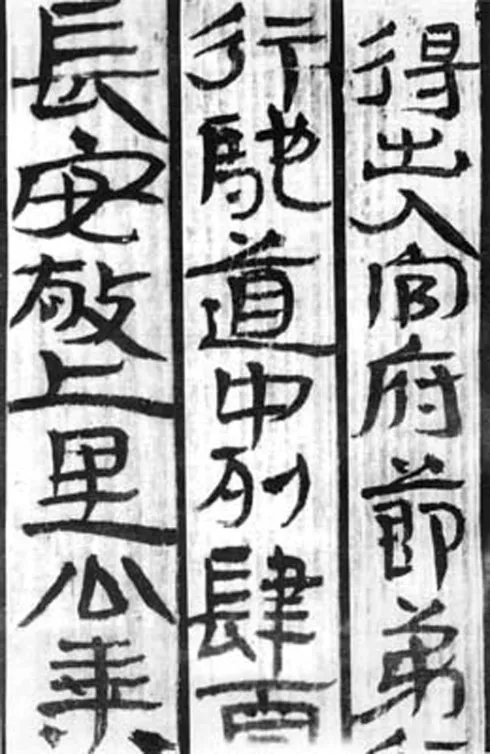 得出入官府節弟
行馳道中列肆賈
長安敬上里公乘